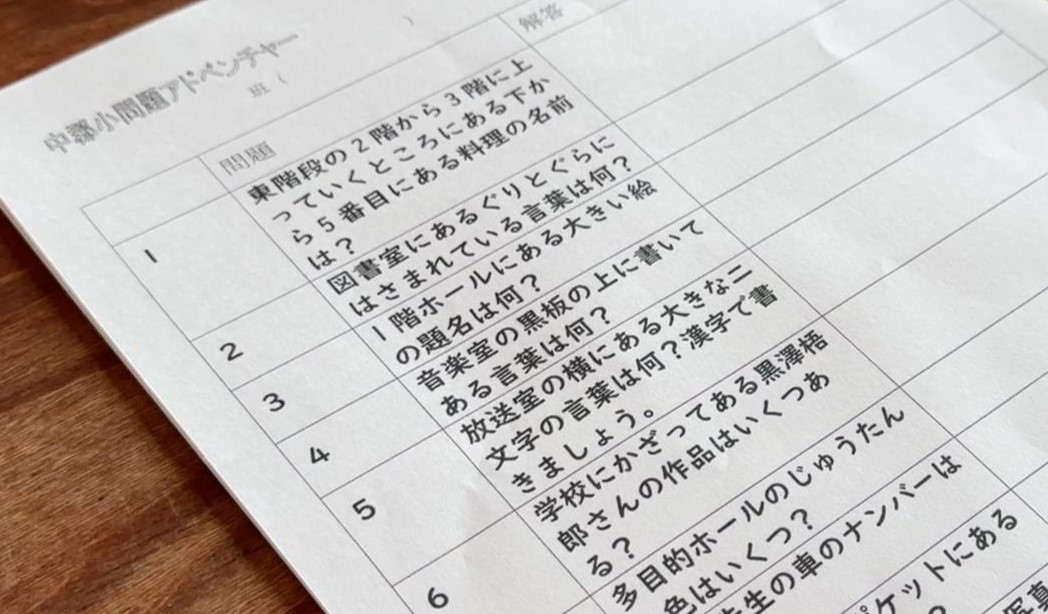 中郷小問題アドベンチャー
班（　　）
問題
解答
1
東階段の2階から3階に上
っていくところにある下か
ら5番目にある料理の名前
は？
2
図書室にあるぐりとぐらに
はさまれている言葉は何？
3
1階ホールにある大きい絵
の題名は何？
4
音楽室の黒板の上に書いて
ある言葉は何？
5
放送室の横にある大きな二
文字の言葉は何？漢字で書
きましょう。
6
学校にかざってある黒澤梧
郎さんの作品はいくつあ
る？
多目的ホールのじゅうたん
色はいくつ？
生の車のナンバーは
ケットにある